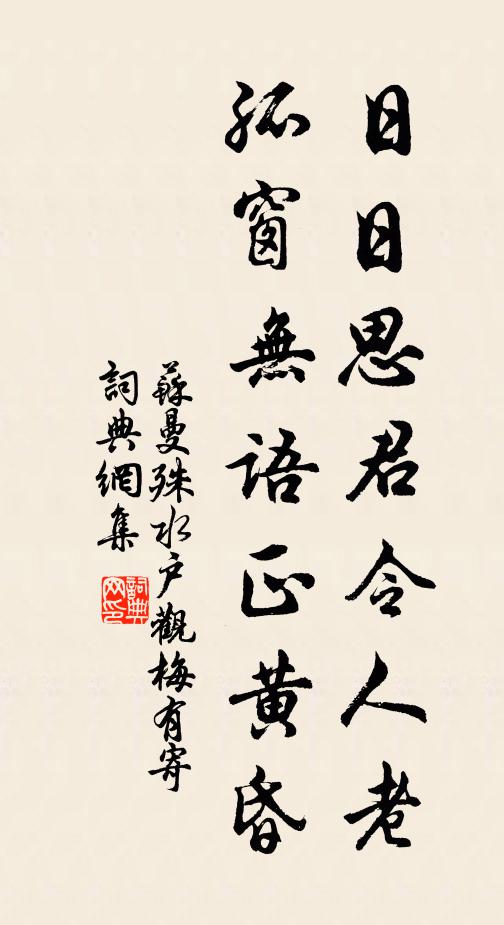 日日思君令人老
孤窗無語正黃昏
蘇曼殊水户觀梅有寄
詞典網集
詞典
网印